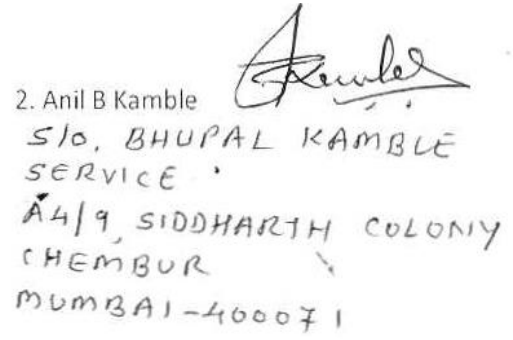 2. Anil B Kamble
S/o, BHUPAL KAMBLE
SERVICE.
A4/9, SIDDHARTH COLONY
CHEMBUR
MUMBAI-400071